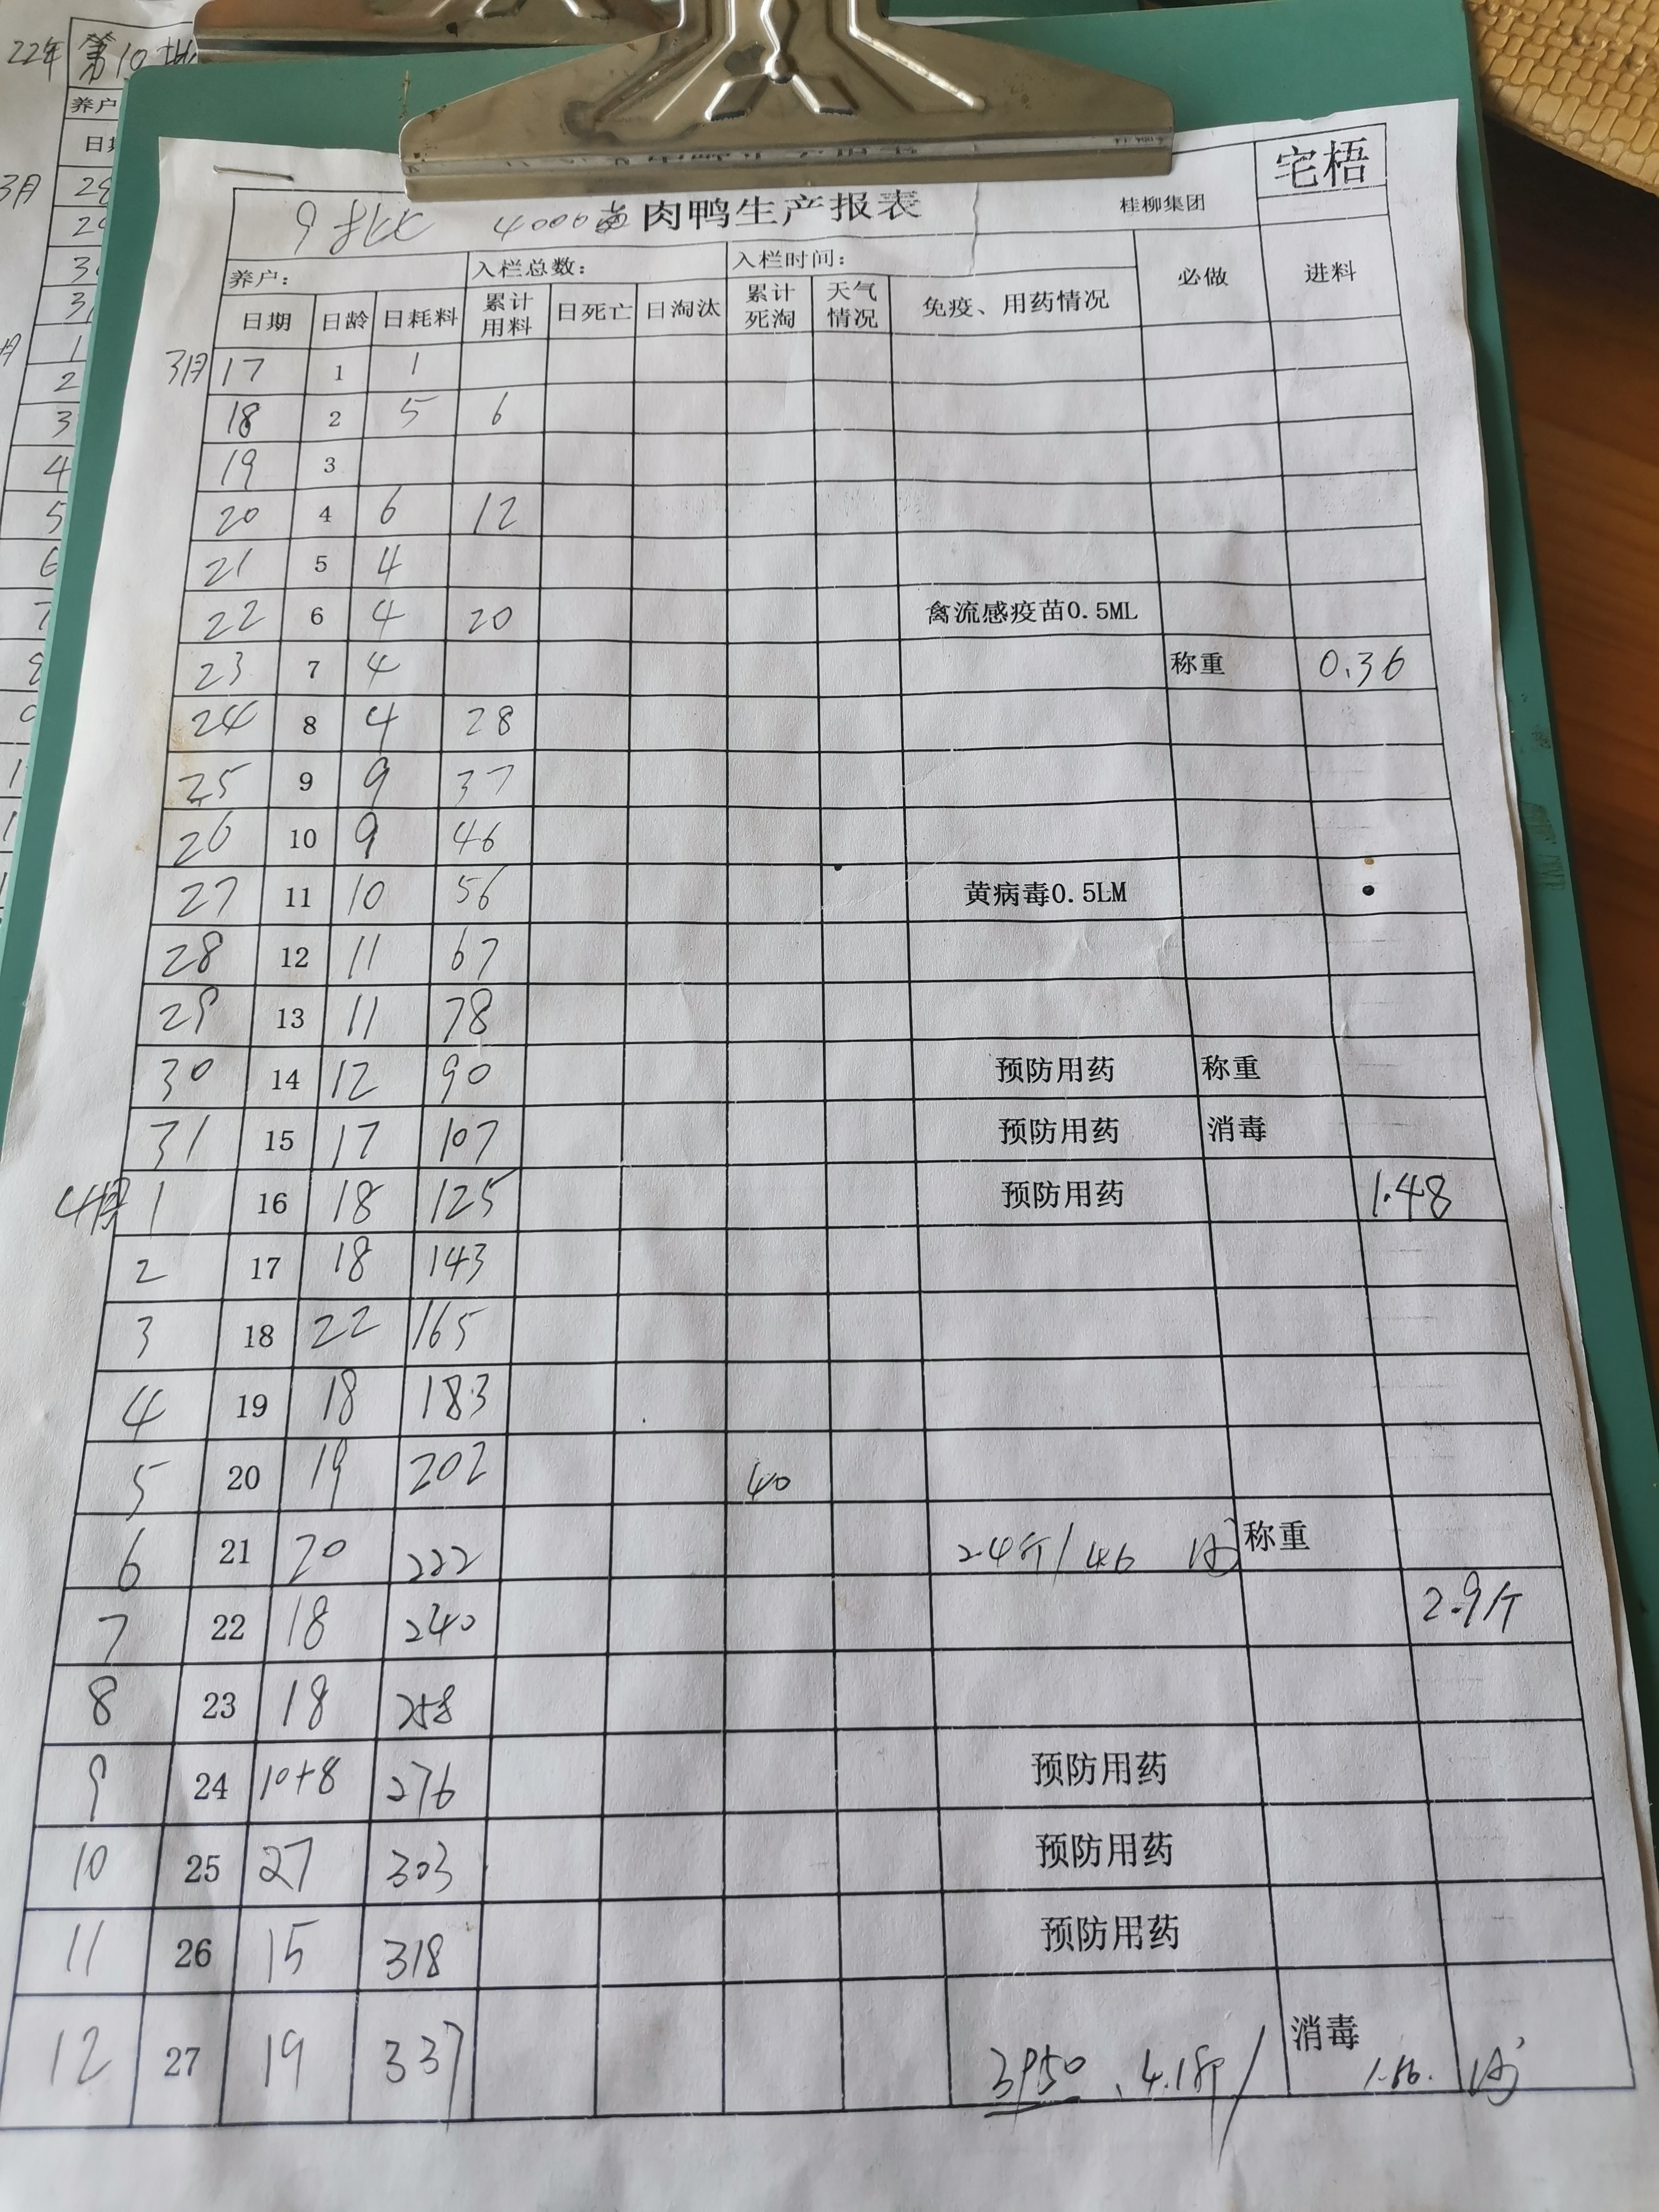 22年 第10批
养户
3月
宅梧
9批 4000 肉鸭生产报表 桂柳集团
养户: 入栏总数: 入栏时间: 必做 进料
日期 日龄 日耗料 累计用料 日死亡 日淘汰 累计死淘 天气情况 免疫、用药情况
3月 17 1 1
18 2 5 6
19 3
20 4 6 12
21 5 4
22 6 4 20 禽流感疫苗0.5ML
23 7 4 称重 0.36
24 8 4 28
25 9 9 37
26 10 9 46
27 11 10 56 黄病毒0.5LM
28 12 11 67
29 13 11 78
30 14 12 90 预防用药 称重
31 15 17 107 预防用药 消毒
4月 1 16 18 125 预防用药 1.48
2 17 18 143
3 18 22 165
4 19 18 183
5 20 19 202 40
6 21 20 222 2.4斤/ 46 称重
7 22 18 240 2.9斤
8 23 18 258
9 24 10+8 276 预防用药
10 25 27 303 预防用药
11 26 15 318 预防用药
12 27 19 337 3950 4.18斤/ 消毒 1.66.